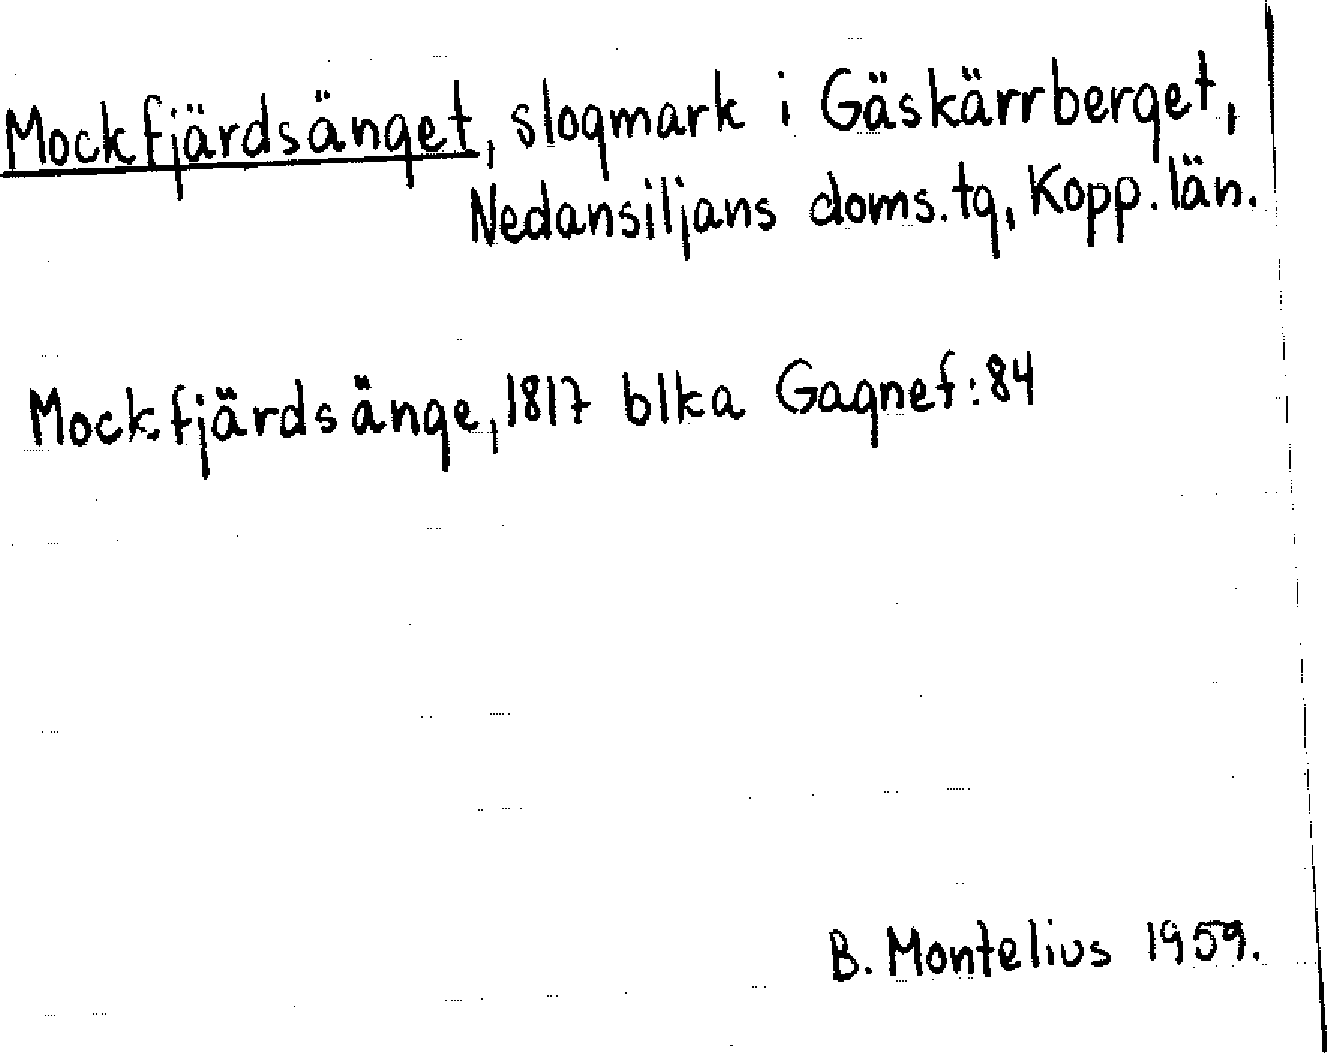 Mockfjärdsänget, slogmark i Gäskärrberget,
Nedansiljans doms.tg, Kopp. län.
Mockfjärdsänge, 1817 blka Gagnef: 84
B. Montelius 1959.